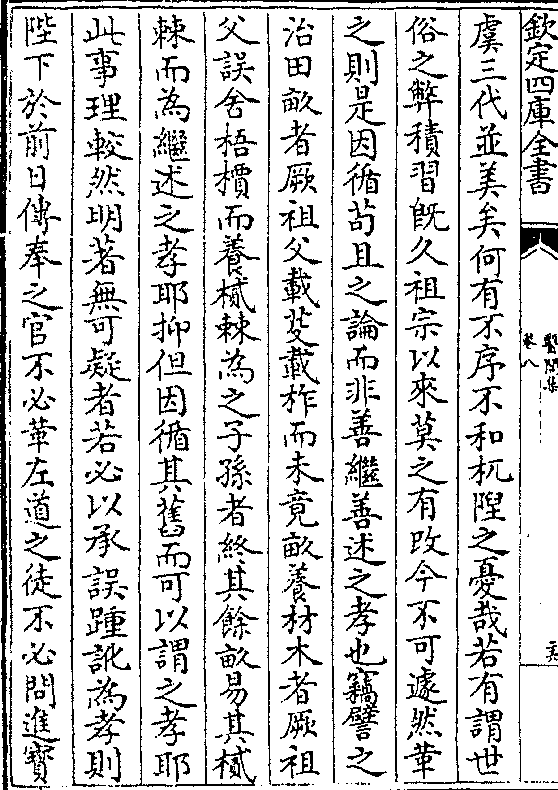 欽定四庫全書
醫閭集
卷八
虞三代並美矣何有不序不和杌隉之憂哉若有謂世
俗之弊積習既久祖宗以來莫之有改今不可遽然革
之則是因循苟且之論而非善繼善述之孝也竊譬之
治田畝者厥祖父載芟載柞而未竟畝養材木者厥祖
父誤舍梧檟而養樲棘為之子孫者終其餘畝易其樲
棘而為繼述之孝耶抑但因循其舊而可以謂之孝耶
此事理較然明著無可疑者若必以承誤踵訛為孝則
陛下於前日傳奉之官不必革左道之徒不必問進寳